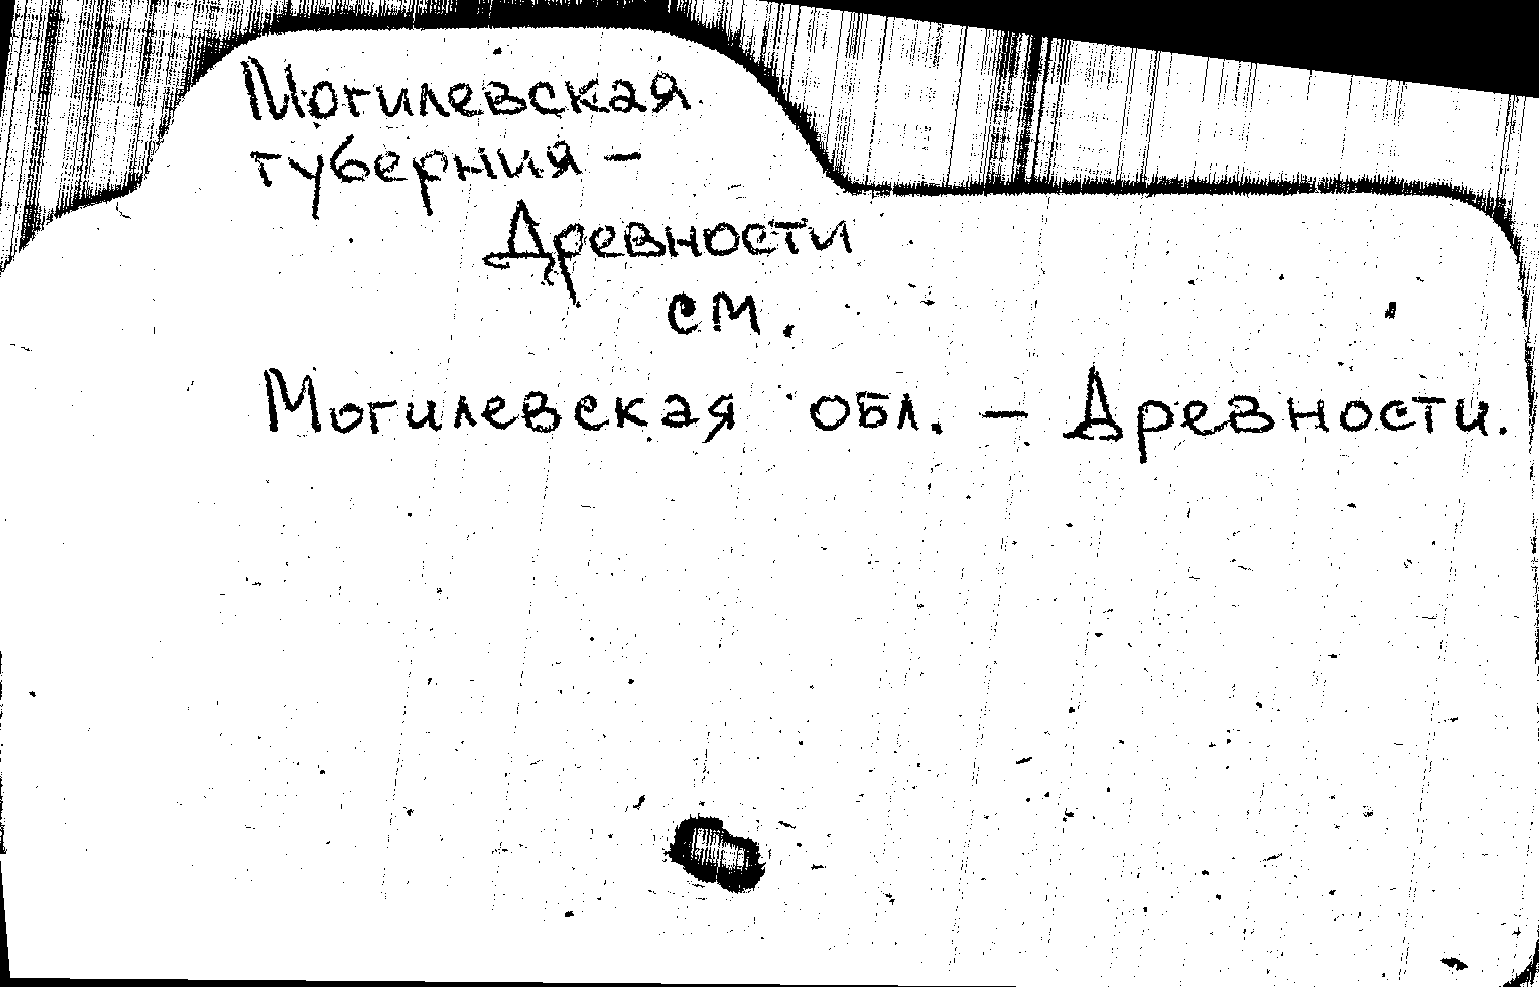 Могилевская
губерния -
Древности
см.
Могилевская обл. - Древности.